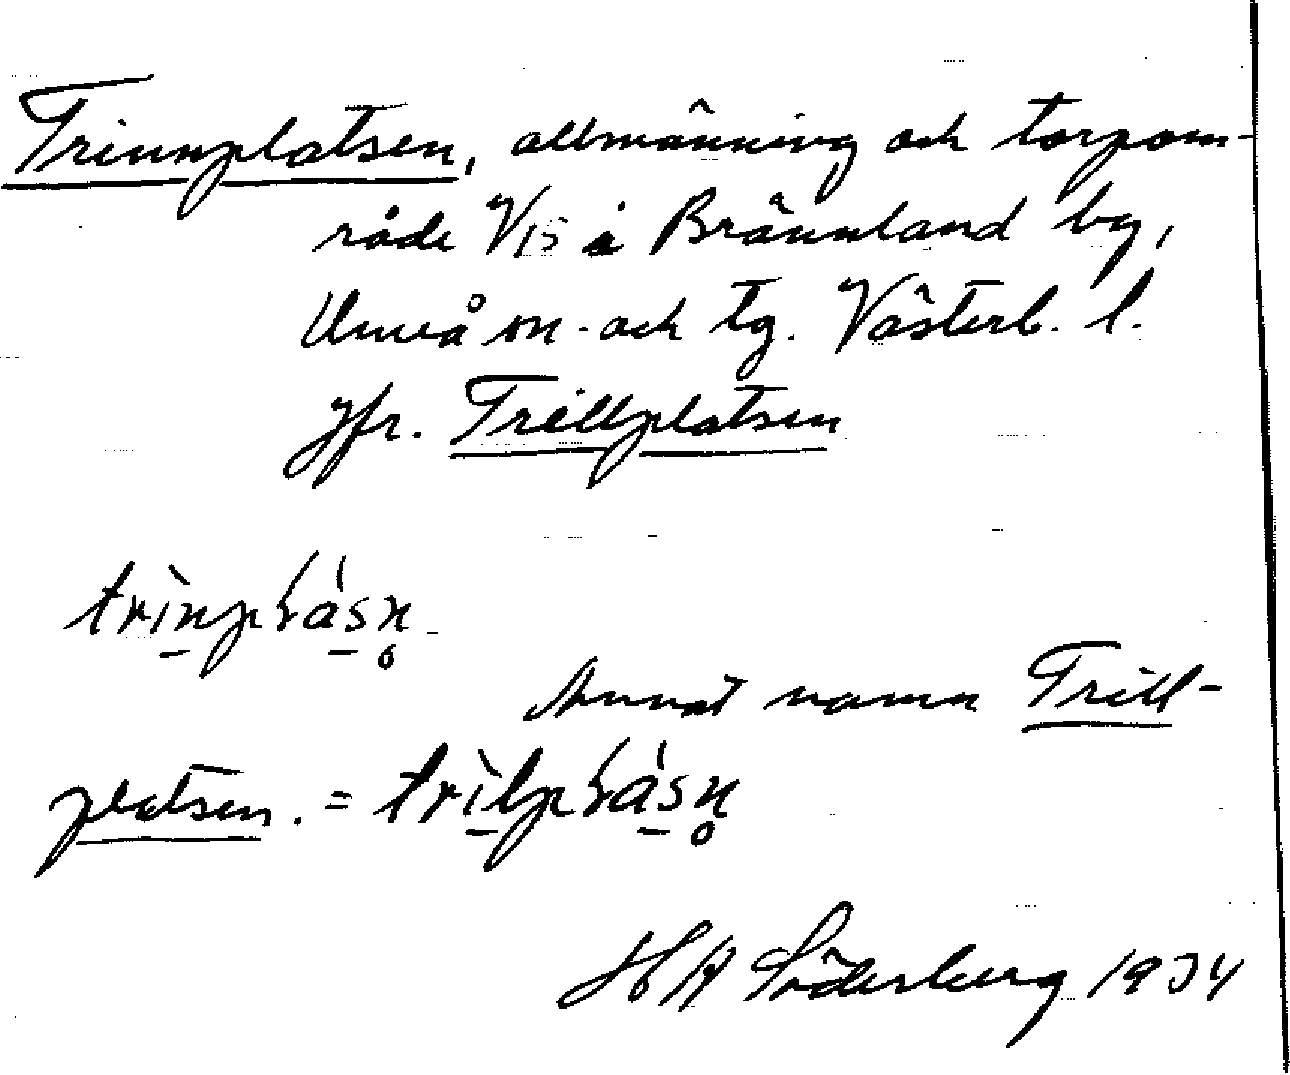 Trinnplatsen, allmänning och torpom-
råde V15 i Brännland by,
Umeå sn. och tg. Västerb. l.
Jfr. Trillplatsen
Annat namn Trill-
platsen. =
H Söderberg 1934